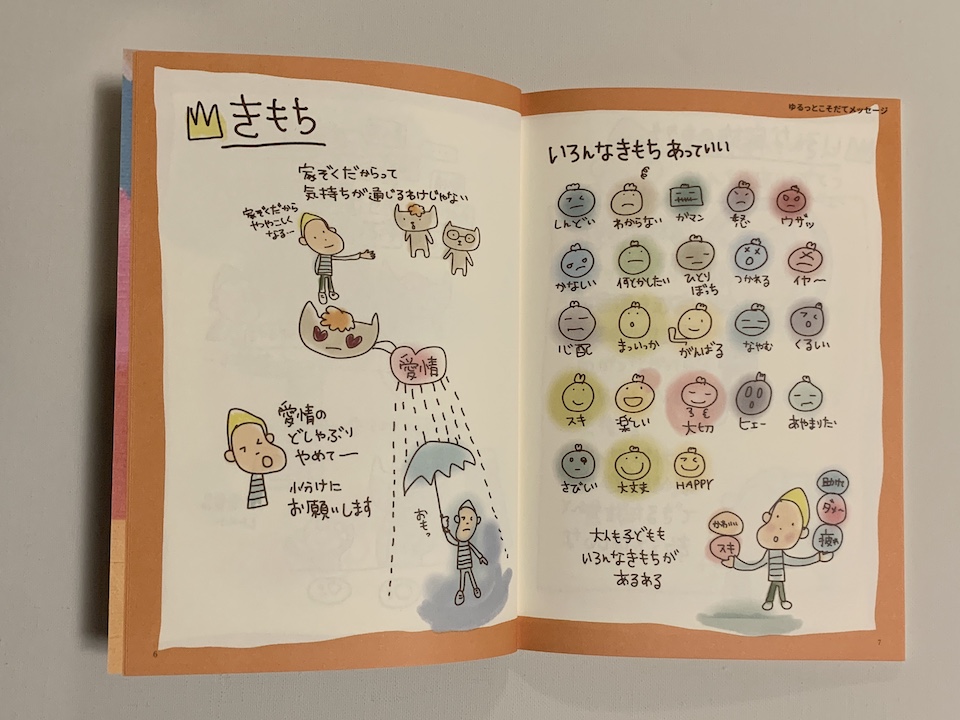 きもち
家ぞくだからって
気持ちが通じるわけじゃない
家ぞくだから
ややこしく
なる…
愛情
愛情の
どしゃぶり
やめてー
小分けに
お願いします
おもっ
6
ゆるっとこそだてメッセージ
いろんなきもち あっていい
しんどい
わからない
ガマン
怒
ウザッ
かなしい
何とかしたい
ひとり
ぼっち
つかれる
イヤ〜
心配
まっいっか
がんばる
なやむ
くるしい
スキ
楽しい
大切
ヒェー
あやまりたい
さびしい
大丈夫
HAPPY
大人も子どもも
いろんなきもちが
あるある
かわいい
スキ
助けて
ダメ〜
疲れ
7